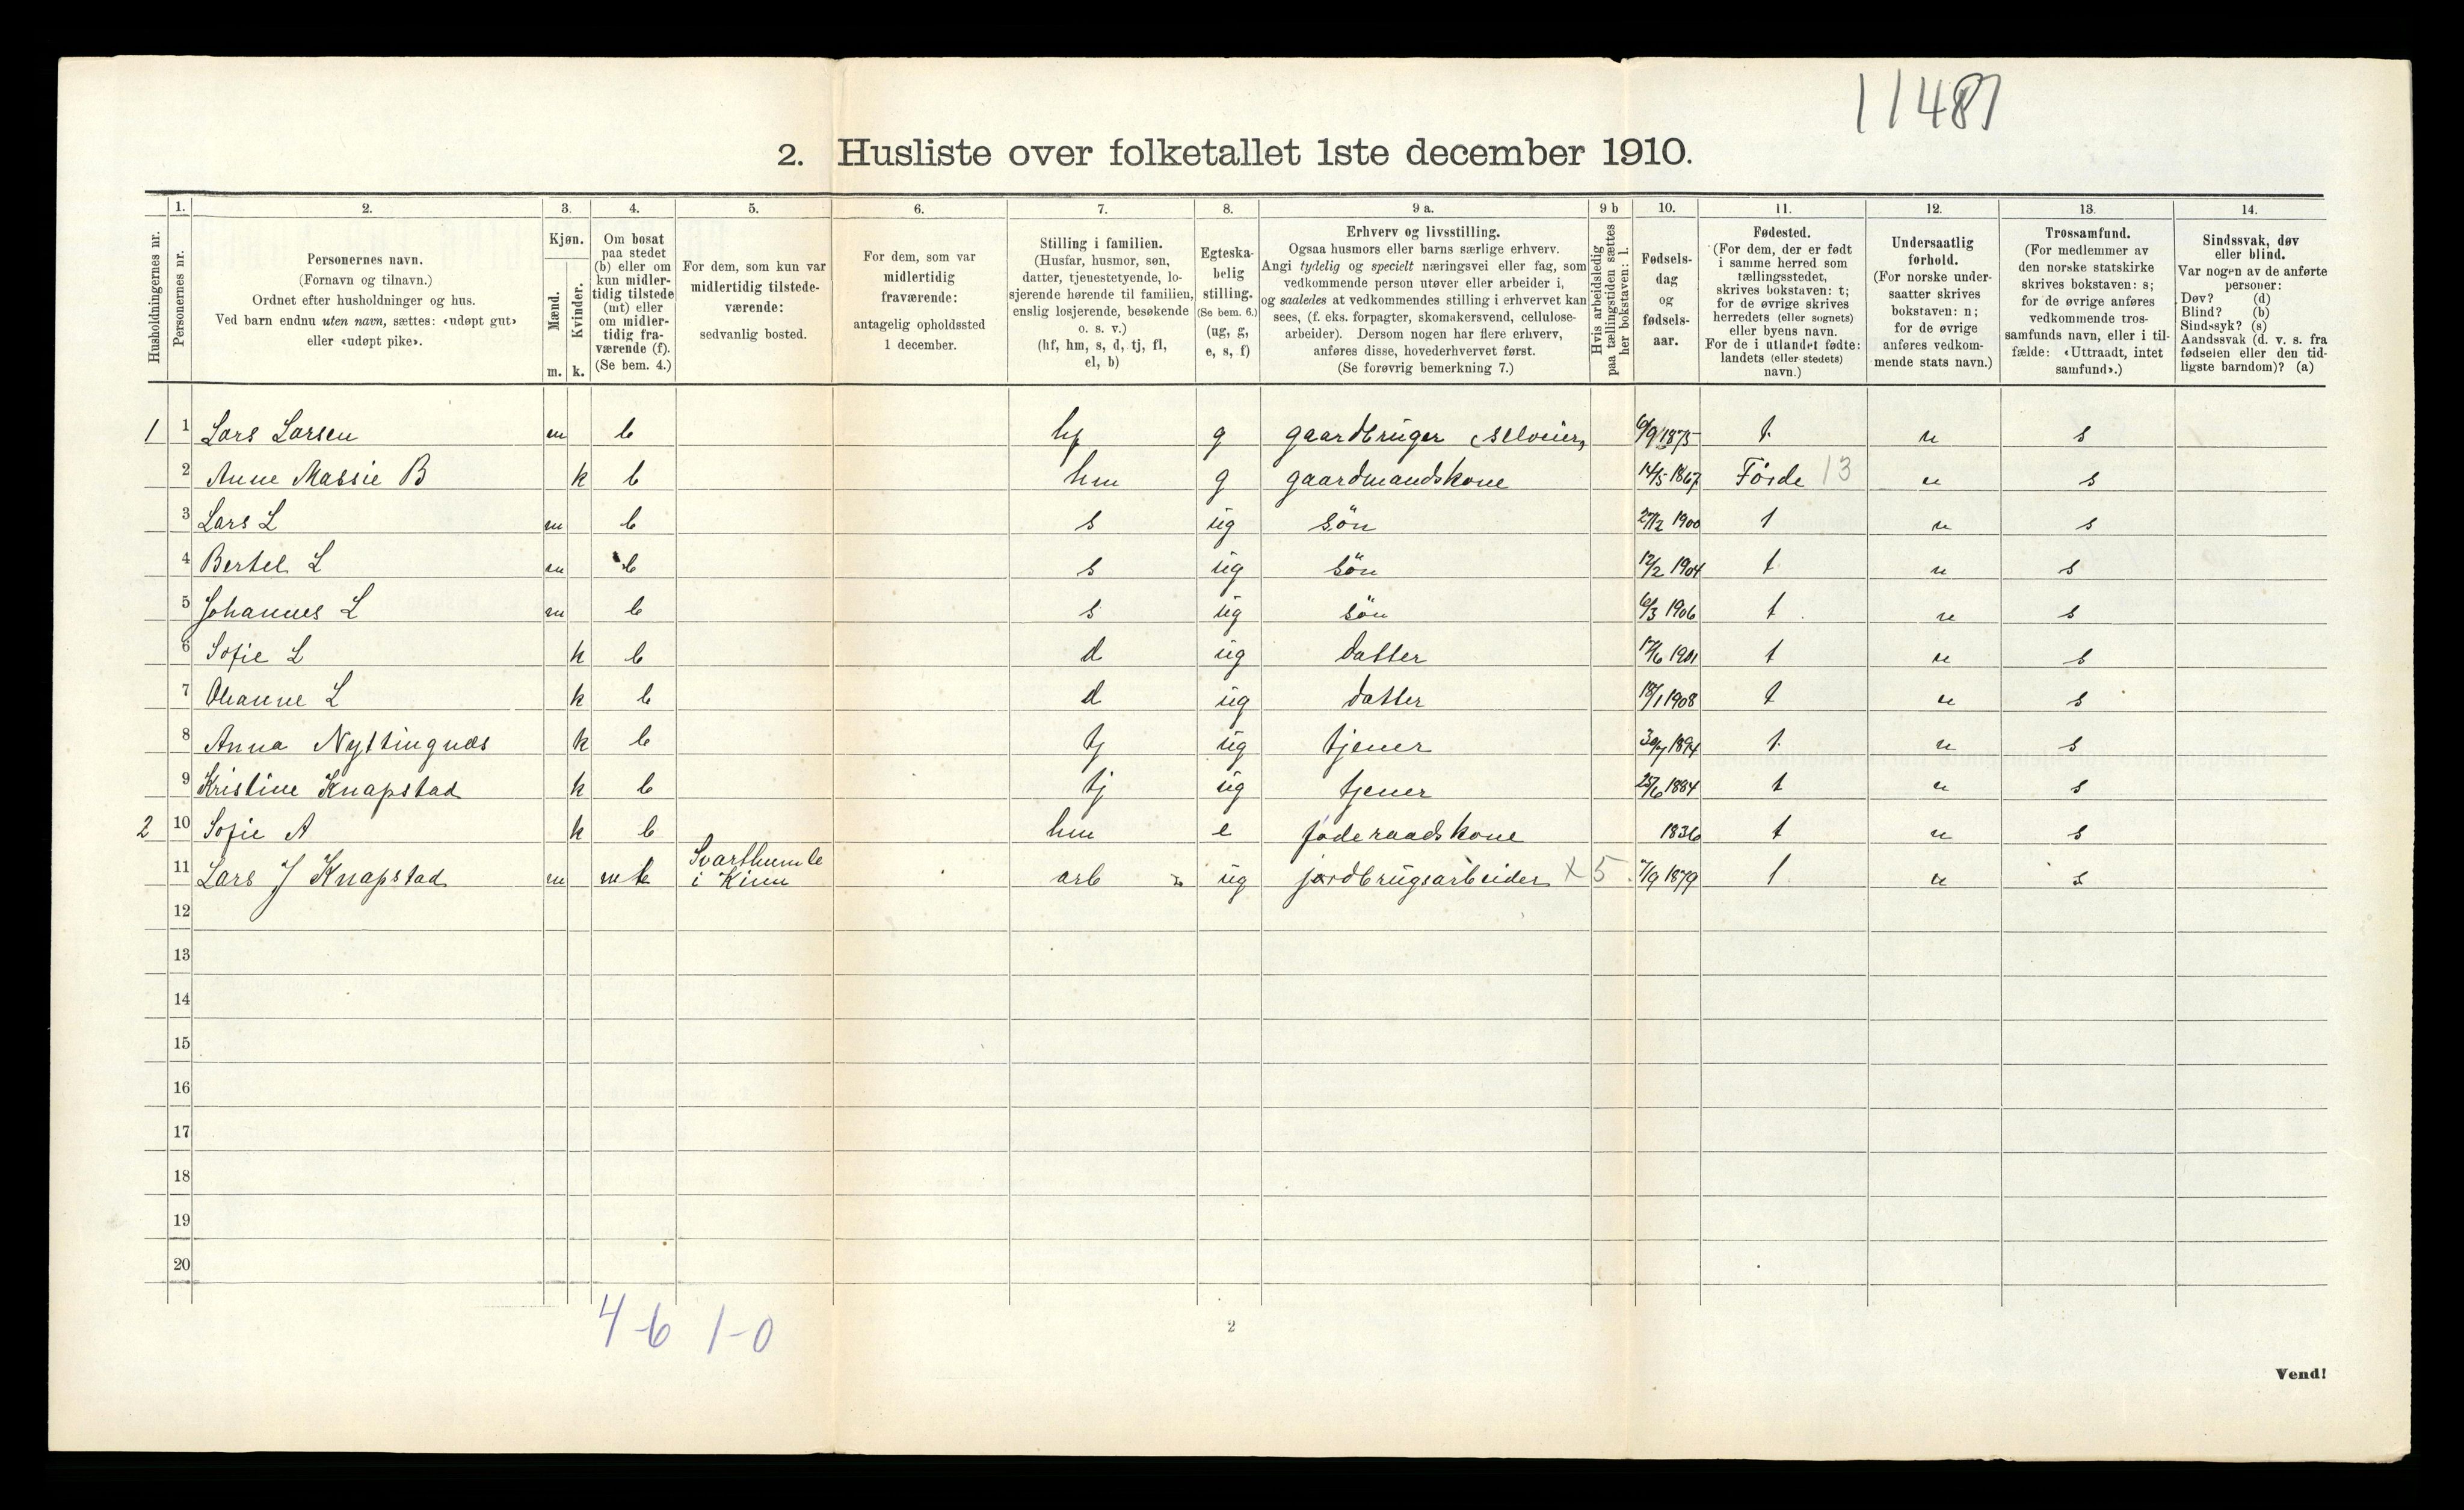 11487
2. Husliste over folketallet 1ste december 1910.
Husholdningernes nr.
1. Personernes nr.
2. Personernes navn.
(Fornavn og tilnavn.)
Ordnet efter husholdninger og hus.
Ved barn endnu uten navn, sættes: «udøpt gut»
eller «udøpt pike».
3. Kjøn.
Mænd. m.
Kvinder. k.
4. Om bosat
paa stedet
(b) eller om
kun midler-
tidig tilstede
(mt) eller
om midler-
tidig fra-
værende (f).
(Se bem. 4.)
5. For dem, som kun var
midlertidig tilstede-
værende:
sedvanlig bosted.
6. For dem, som var
midlertidig
fraværende:
antagelig opholdssted
1 december.
7. Stilling i familien.
(Husfar, husmor, søn,
datter, tjenestetyende, lo-
sjerende hørende til familien,
enslig losjerende, besøkende
o. s. v.)
(hf, hm, s, d, tj, fl,
el, b)
8. Egteska-
belig
stilling.
(Se bem. 6.)
(ug, g,
e, s, f)
9 a. Erhverv og livsstilling.
Ogsaa husmors eller barns særlige erhverv.
Angi tydelig og specielt næringsvei eller fag, som
vedkommende person utøver eller arbeider i,
og saaledes at vedkommendes stilling i erhvervet kan
sees, (f. eks. forpagter, skomakersvend, cellulose-
arbeider). Dersom nogen har flere erhverv,
anføres disse, hovederhvervet først.
(Se forøvrig bemerkning 7.)
9 b Hvis arbeidsledig
paa tællingstiden sættes
her bokstaven: l.
10. Fødsels-
dag
og
fødsels-
aar.
11. Fødested.
(For dem, der er født
i samme herred som
tællingsstedet,
skrives bokstaven: t;
for de øvrige skrives
herredets (eller sognets)
eller byens navn.
For de i utlandet fødte:
landets (eller stedets)
navn.)
12. Undersaatlig
forhold.
(For norske under-
saatter skrives
bokstaven: n;
for de øvrige
anføres vedkom-
mende stats navn.)
13. Trossamfund.
(For medlemmer av
den norske statskirke
skrives bokstaven: s;
for de øvrige anføres
vedkommende tros-
samfunds navn, eller i til-
fælde: «Uttraadt, intet
samfund».)
14. Sindssvak, døv
eller blind.
Var nogen av de anførte
personer:
Døv? (d)
Blind? (b)
Sindssyk? (s)
Aandssvak (d. v. s. fra
fødselen eller den tid-
ligste barndom)? (a)
1 1 Lars Larsen m b hf g gaardbruger (selveier) 6/9 1875 t n s
2 Anne Massie B k b hm g gaardmandskone 14/5 1867 Førde 13 n s
3 Lars L m b s ug søn 27/2 1900 t n s
4 Bertel L m b s ug søn 12/2 1904 t n s
5 Johannes L m b s ug søn 6/3 1906 t n s
6 Sofie L k b d ug datter 17/6 1901 t n s
7 Oleanne L k b d ug datter 18/1 1908 t n s
8 Anna Nyttingnes k b tj ug tjener 1894 t n s
9 Kristine Knapstad k b tj ug tjener 25/6 1884 t n s
2 10 Sofie A k b hm e føderaadskone 1836 t n s
11 Lars J Knapstad m mt Svarthumle
i Kinn arb ug jordbrugsarbeider x 5 7/9 1879 t n s
12
13
14
15
16
17
18
19
20
4-6 1-0
2
Vend!